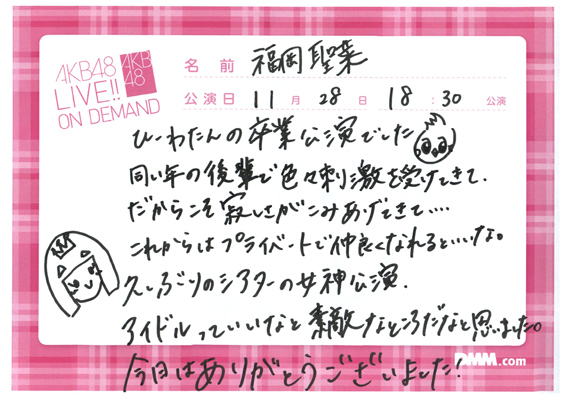 AKB48
LIVE!!
ON DEMAND
AKB
48
名前 福岡聖菜
公演日 11月28日 18:30 公演
ひーわたんの卒業公演でした
同い年の後輩で色々刺激を受けてきて、
だからこそ寂しさがこみあげてきて....
これからはプライベートで仲良くなれるといいな。
久しぶりのシアターの女神公演、
アイドルっていいなと素敵なところだなと思いました。
今日はありがとうございました!
DMM.com